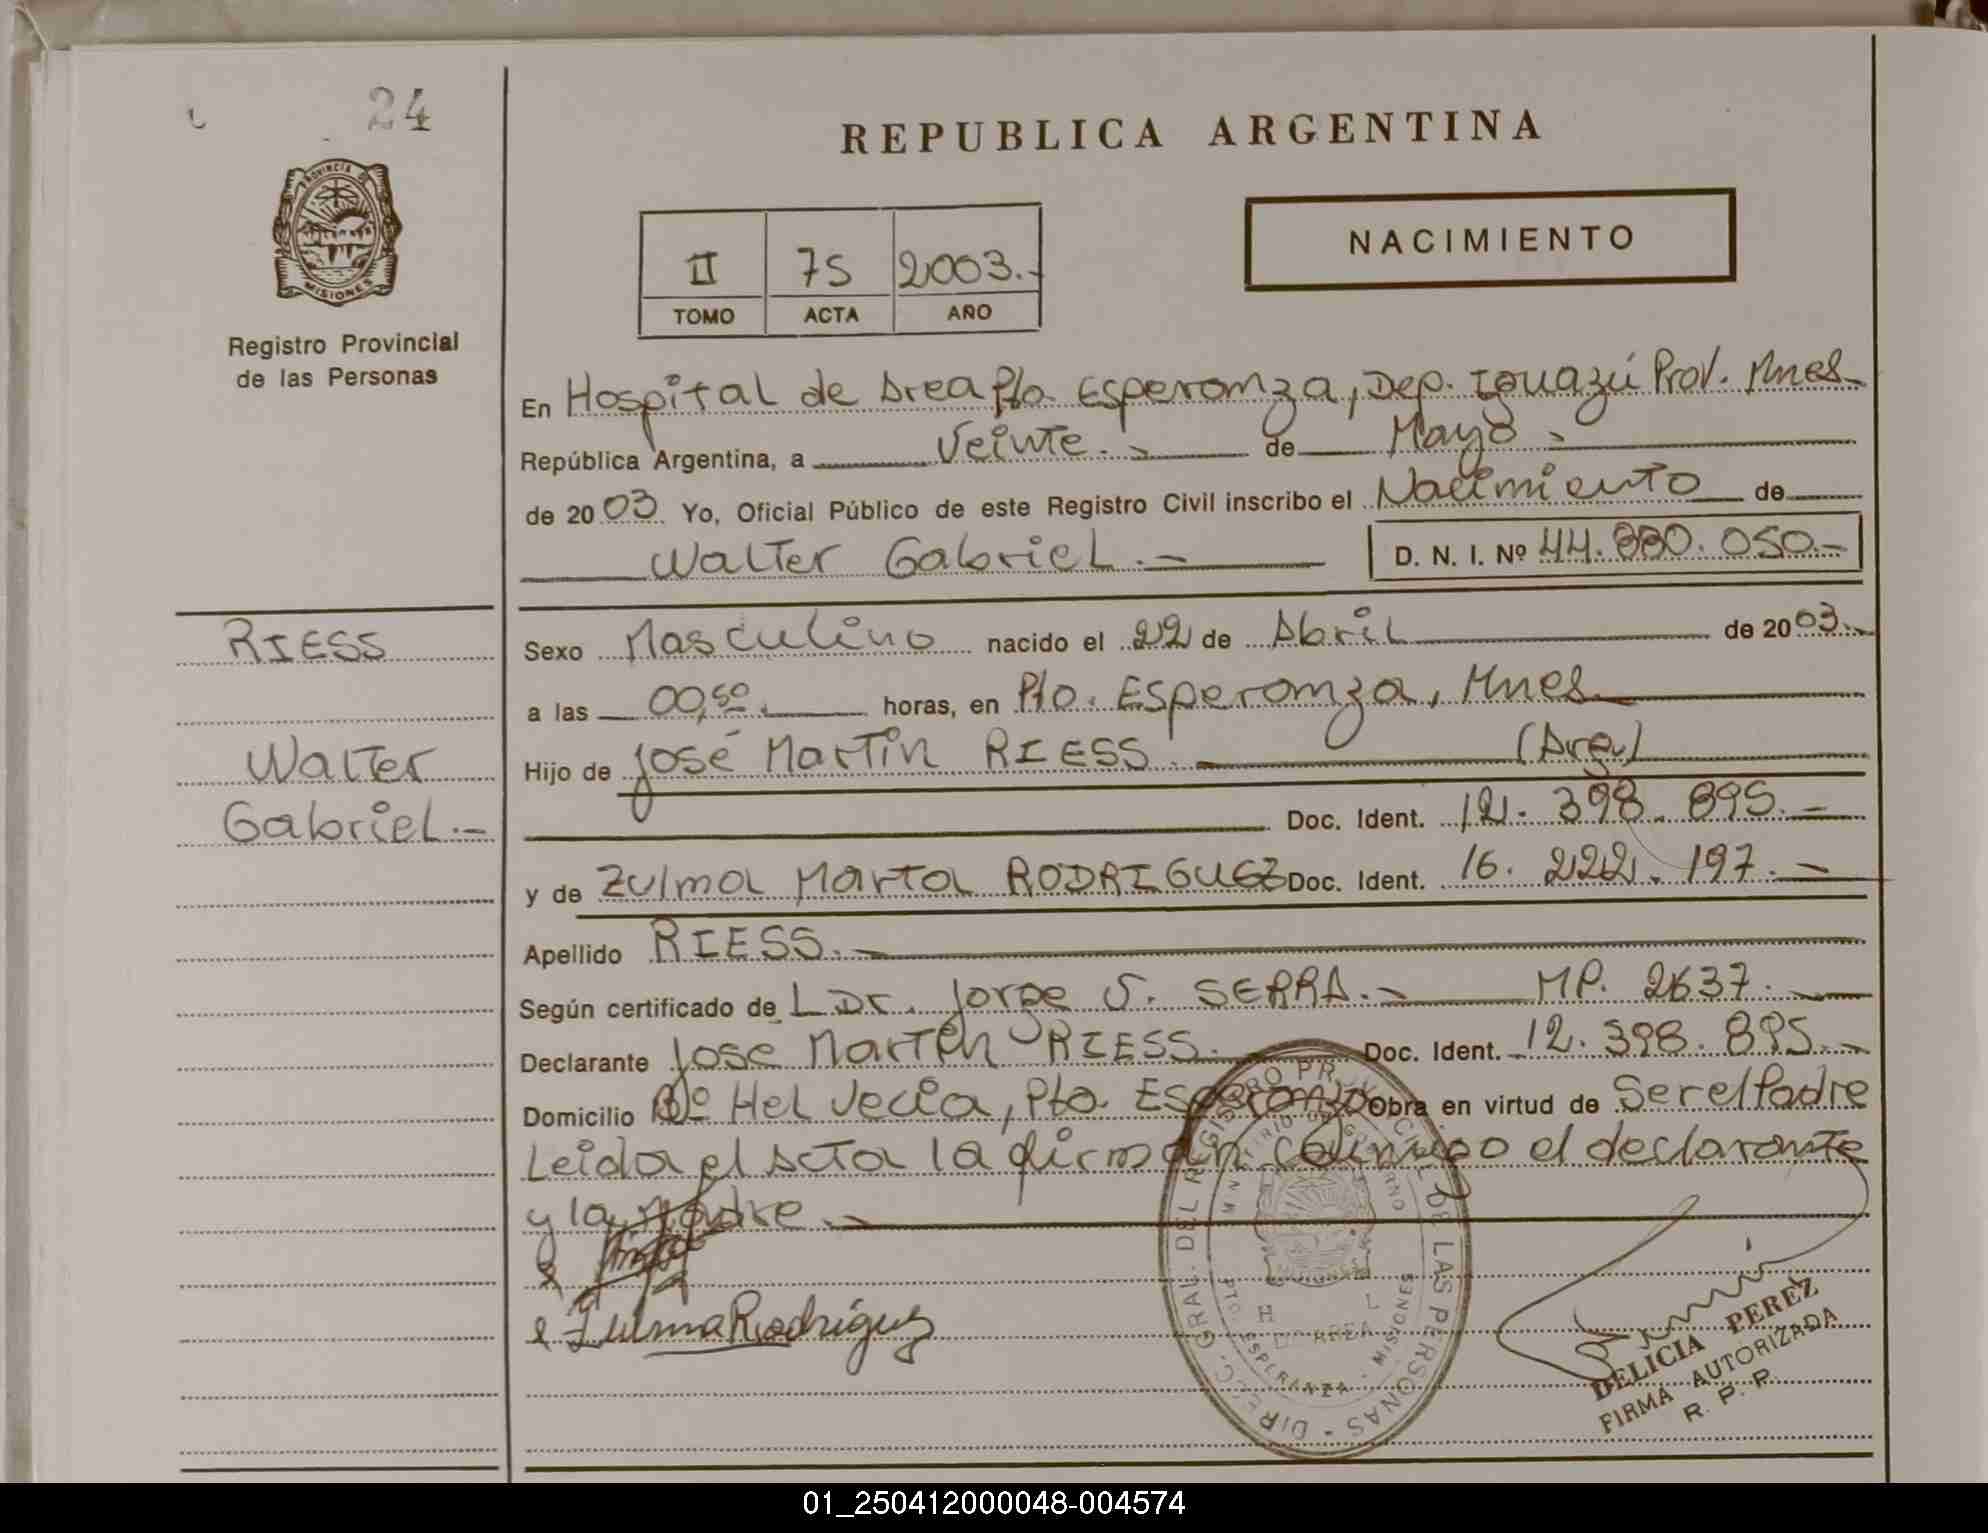 24
PROVINCIA DE
MISIONES
Registro Provincial
de las Personas
REPUBLICA ARGENTINA
II 75 2003.-
TOMO ACTA AÑO
NACIMIENTO
En Hospital de Area Pto. Esperanza, Dep. Iguazú Prov. Mnes.
República Argentina, a Veinte.- de Mayo.-
de 2003 Yo, Oficial Público de este Registro Civil inscribo el Nacimiento de
Walter Gabriel.- D. N. I. Nº 44.880.050.-
RIESS
Walter
Gabriel.-
Sexo Masculino nacido el 22 de Abril de 2003.-
a las 00,50. horas, en Pto. Esperanza, Mnes.
Hijo de José Martín RIESS.- (Arg.)
Doc. Ident. 12.398.895.-
y de Zulma Marta RODRIGUEZ Doc. Ident. 16.222.197.-
Apellido RIESS.-
Según certificado de L Dr. Jorge S. SERRA.- MP. 2637.-
Declarante José Martín RIESS.- Doc. Ident. 12.398.895.-
Domicilio Bº Helvecia, Pto. Esperanza Obra en virtud de Ser el Padre
Leida el Acta la firman conmigo el declarante
y la Madre.-
Zulma Rodríguez
DIRECC. GRAL. DEL REGISTRO PROVINCIAL DE LAS PERSONAS
MINISTERIO DE GOBIERNO
PTO. ESPERANZA - MISIONES
DELICIA PEREZ
FIRMA AUTORIZADA
R. P. P.
01_250412000048-004574